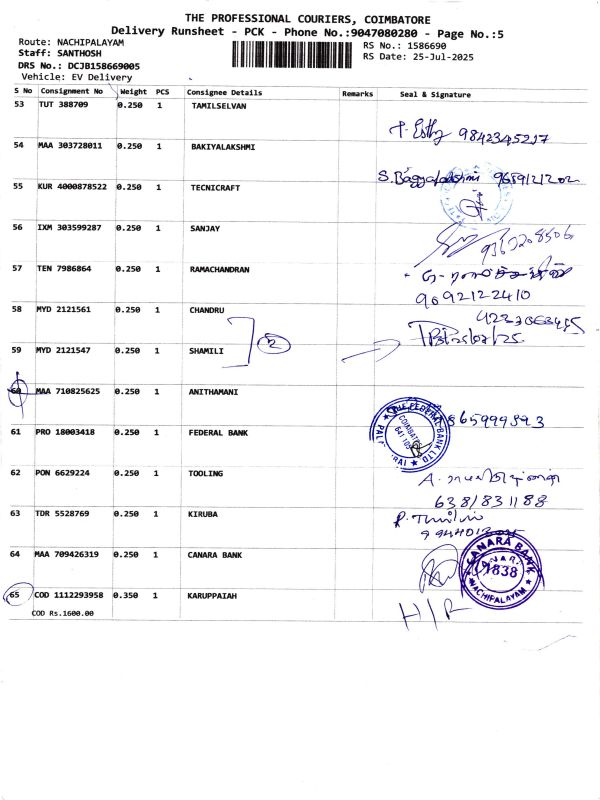 THE PROFESSIONAL COURIERS, COIMBATORE
Delivery Runsheet - PCK - Phone No.:9047080280 - Page No.:5
Route: NACHIPALAYAM
RS No.: 1586690
Staff: SANTHOSH
RS Date: 25-Jul-2025
DRS No.: DCJB158669005
Vehicle: EV Delivery
S No Consignment No Weight PCS Consignee Details Remarks Seal & Signature
53 TUT 388709 0.250 1 TAMILSELVAN
9842345217
54 MAA 303728011 0.250 1 BAKIYALAKSHMI
S. Bagyalakshmi 9659121202
55 KUR 4000878522 0.250 1 TECNICRAFT
56 IXM 303599287 0.250 1 SANJAY
57 TEN 7986864 0.250 1 RAMACHANDRAN
9092122410
58 MYD 2121561 0.250 1 CHANDRU
2
59 MYD 2121547 0.250 1 SHAMILI
60 MAA 710825625 0.250 1 ANITHAMANI
61 PRO 18003418 0.250 1 FEDERAL BANK
THE FEDERAL BANK LTD
COIMBATORE
62 PON 6629224 0.250 1 TOOLING
6381831188
63 TDR 5528769 0.250 1 KIRUBA
64 MAA 709426319 0.250 1 CANARA BANK
CANARA BANK
1838
NACHIPALAYAM
65 COD 1112293958 0.350 1 KARUPPAIAH
COD Rs.1600.00
H/R